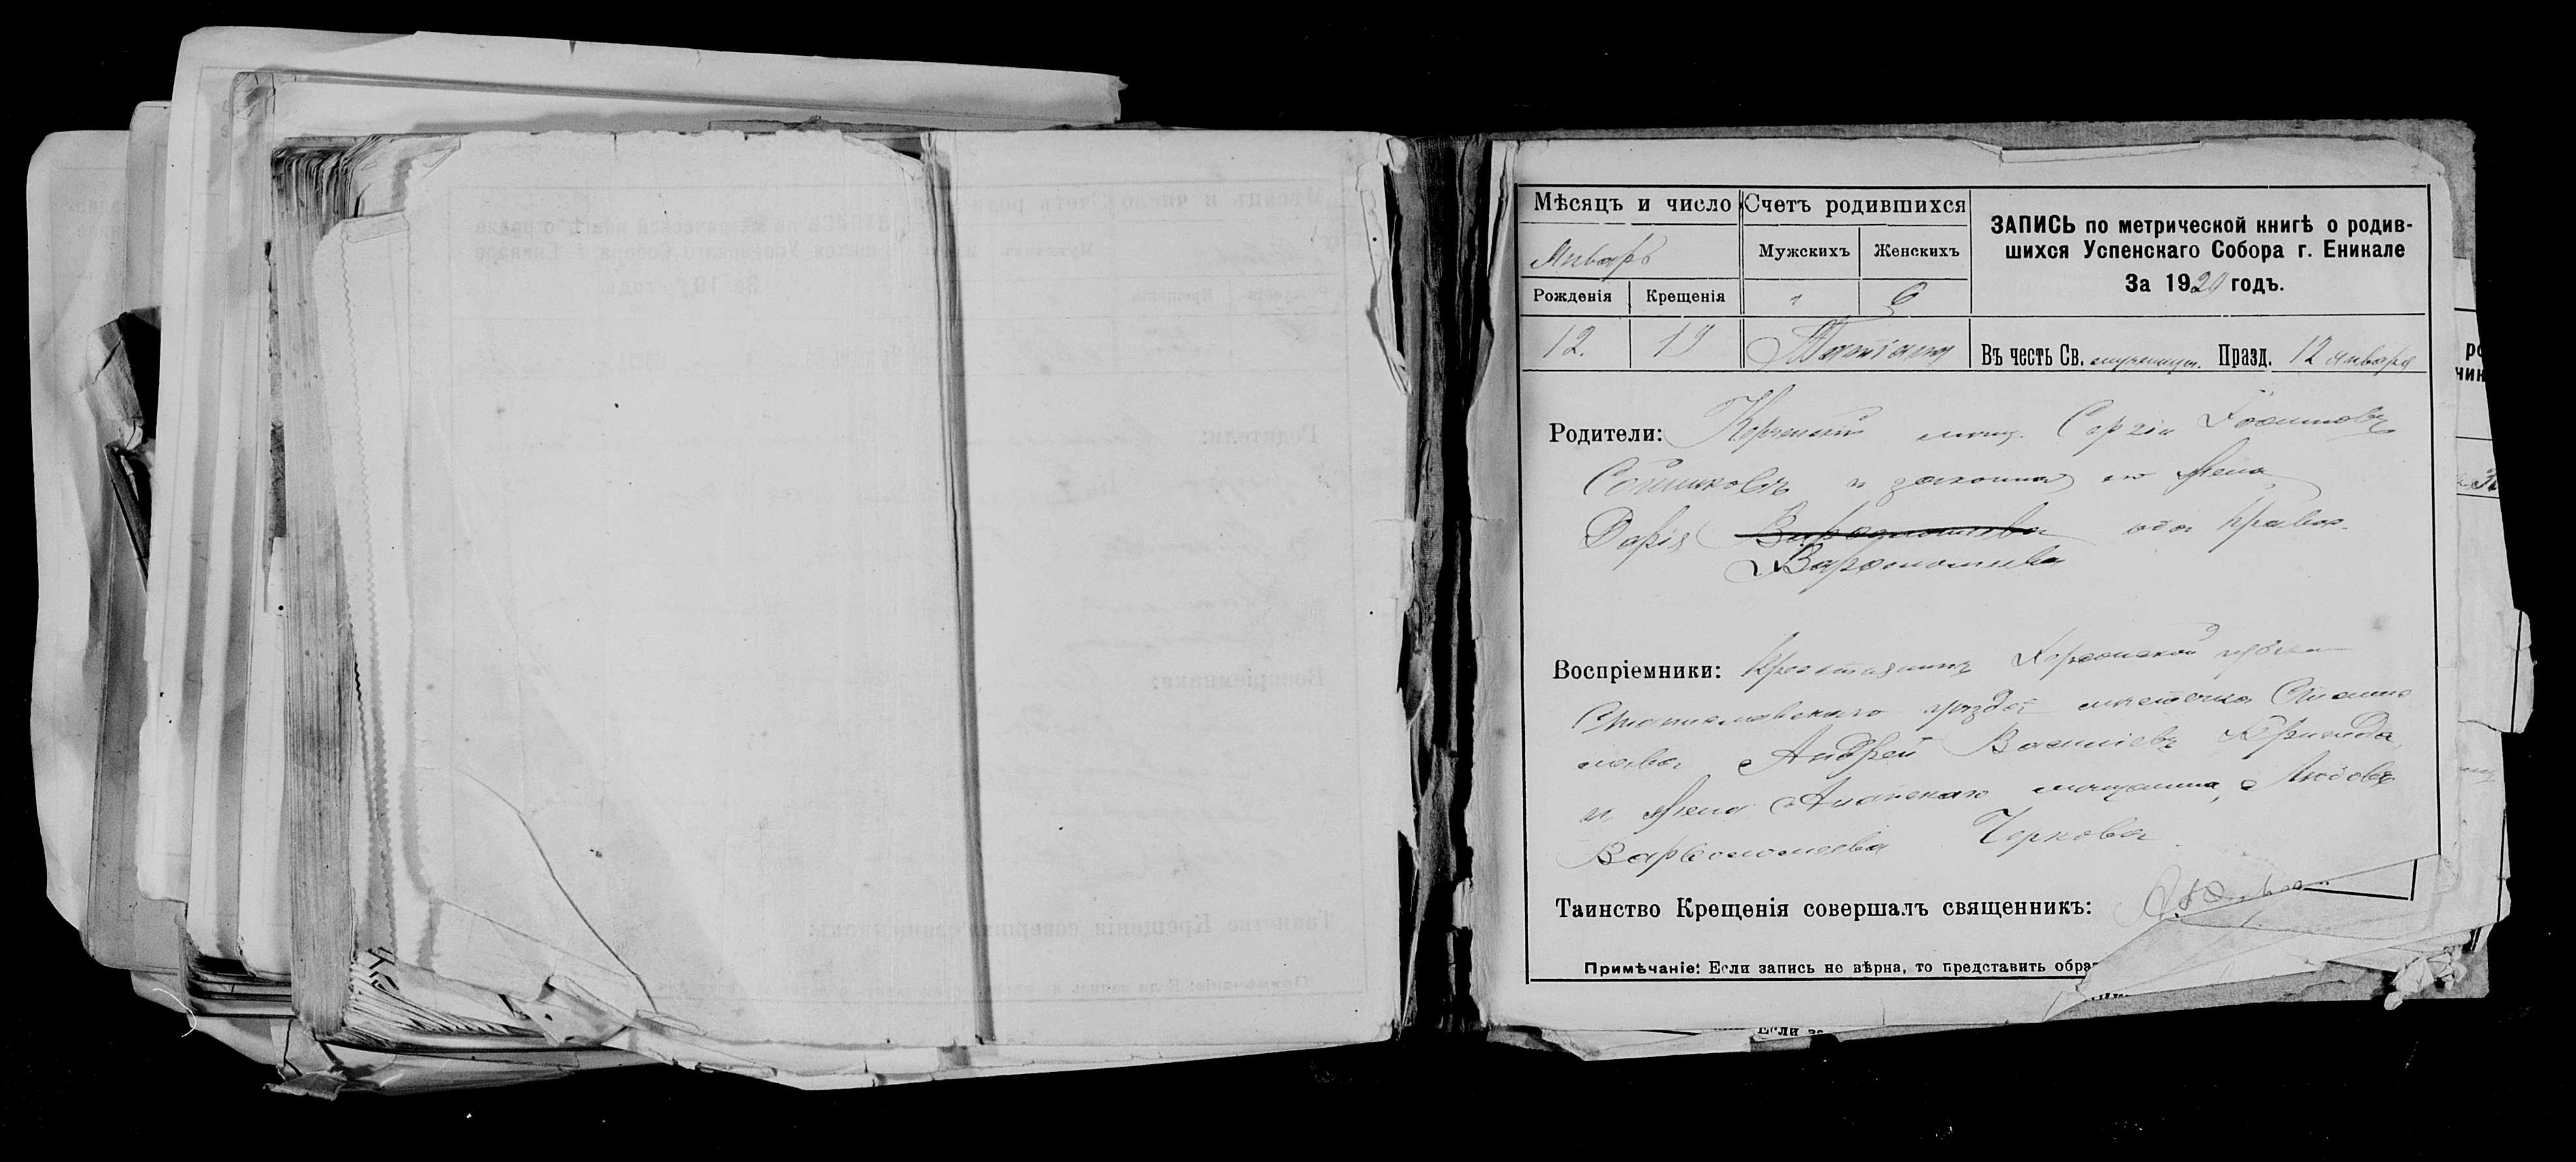 Мѣсяцъ и число
Счетъ родившихся
ЗАПИСЬ по метрической книгѣ о родив-
шихся Успенскаго Собора г. Еникале
За 1920 годъ.
Январь
Мужскихъ
Женскихъ
Рожденія
Крещенія
"
6
12.
19
Татіана
Въ честь Св. мученицы. Празд. 12 января
Родители: Керченскій мѣщ. Сергій
и законная его жена
Дарія Варфоломеева оба правос.
Варфоломеева
Воспріемники: Крестьянинъ Херсонской губерніи
уѣзда мѣстечка Станис
лава Андрей Васильевъ
и жена Анапскаго мѣщанина, Любовь
Варфоломеева Чоркова
Таинство Крещенія совершалъ священникъ:
Примѣчаніе: Если запись не вѣрна, то представить обра
Если за